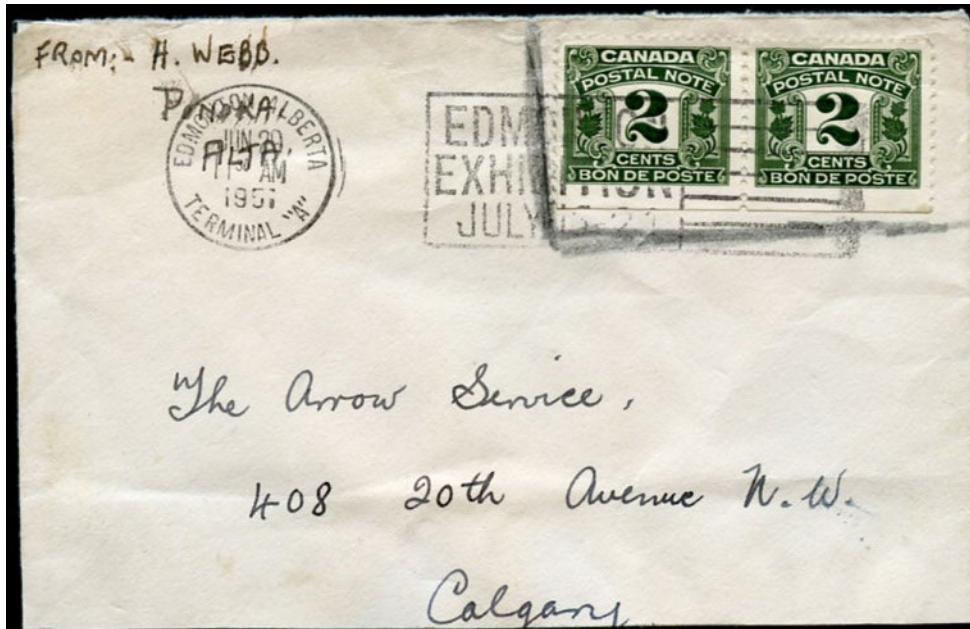 FROM:- H. WEBB.
PONOKA
ALTA.
EDMONTON ALBERTA
JUN 20
AM
1951
TERMINAL "A"
EDMONTON
EXHIBITION
JULY
CANADA
POSTAL NOTE
2
CENTS
BON DE POSTE
CANADA
POSTAL NOTE
2
CENTS
BON DE POSTE
The Arrow Service,
408 20th Avenue N.W.
Calgary